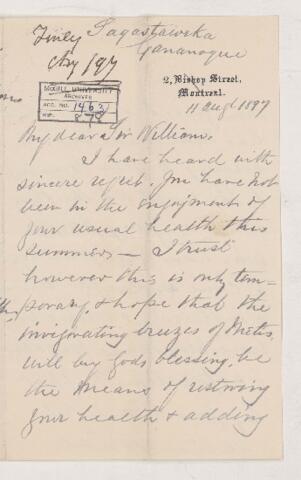 Sagastaweka
Gananoque
Aug /97
2, Bishop Street,
Montreal.
11 Aug 1897
McGILL UNIVERSITY
ARCHIVES
ACC. NO. 1463
REF. 878
My dear Sir William,
I have heard with
sincere regret. You have not
been in the enjoyment of
your usual health this
summer — I trust
however this is only tem-
porary, & hope that the
invigorating breezes of Metis,
will by Gods blessing, be
the means of restoring
your health & adding